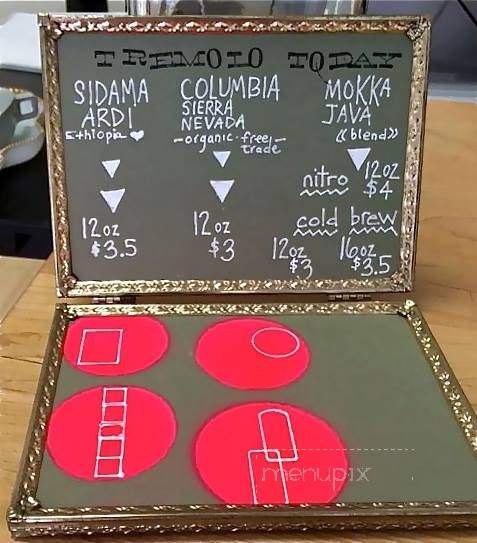 TREMOLO TODAY
SIDAMA
ARDI
Ethiopia ♥
COLUMBIA
SIERRA
NEVADA
-organic-free-
trade
MOKKA
JAVA
«blend»
12oz
$3.5
12oz
$3
nitro 12oz
$4
cold brew
12oz
$3
16oz
$3.5
menupix